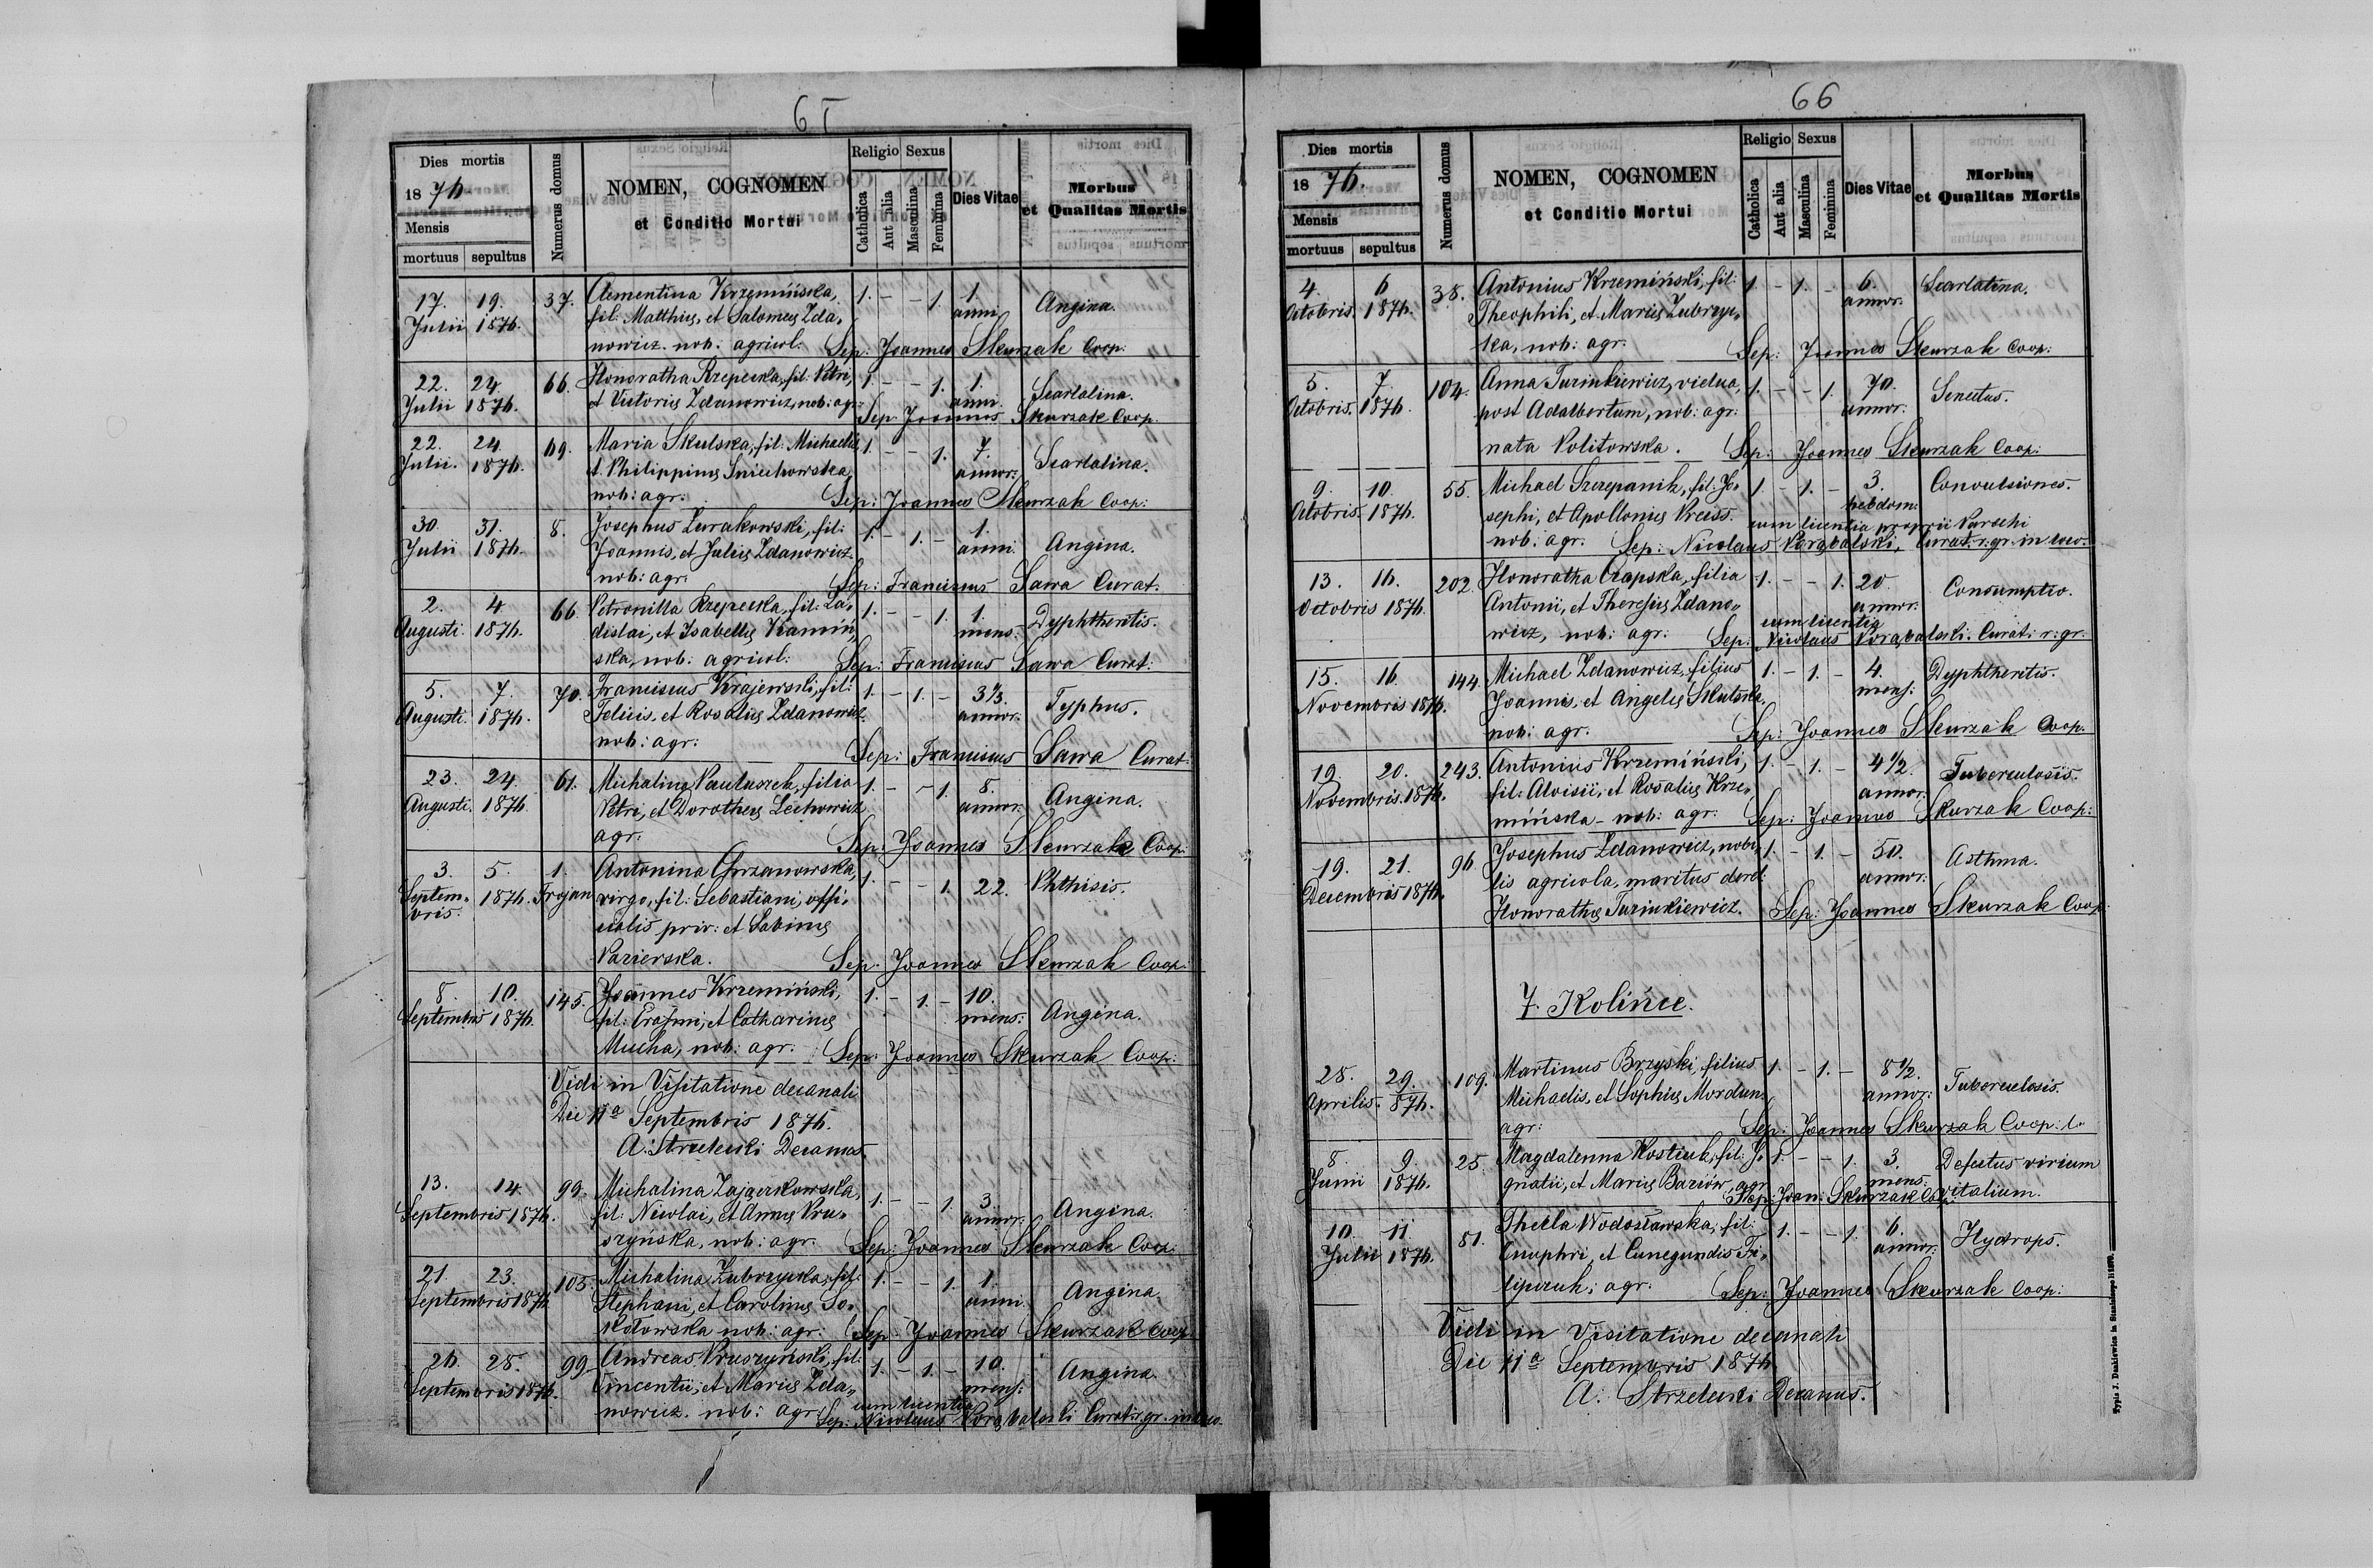 65
Dies mortis
1876.
Mensis
mortuus sepultus
Numerus domus
NOMEN, COGNOMEN
et Conditio Mortui
Religio Sexus
Catholica
Aut alia
Masculina
Feminina
Dies Vitae
Morbus
et Qualitas Mortis
17. 19. 37. Clementina Krzemińska, 1. - - 1. 1. Angina.
Julii 1876. fil: Matthiæ, et Salomeæ Zda„ anni
nowicz. nob: agricol: Sep: Joannes Skurzak Coop:
22. 24. 66. Honoratha Rzepecka, fil: Petri, 1. - - 1. 1. Scarlatina.
Julii 1876. et Victoriæ Zdanowicz, nob: agr: anni
Sep: Joannes Skurzak Coop.
22. 24. 69. Maria Skulska, fil: Michaelis, 1. - - 1. 7. Scarlatina.
Julii. 1876. et Philippinæ Sniechowska, annor:
nob: agr: Sep: Joannes Skurzak Coop:
30. 31. 8. Josephus Zurakowski, fil: 1. - 1. - 1. Angina.
Julii 1876. Joannis, et Juliæ Zdanowicz anni.
nob: agr: Sep: Franciscus Sawa Curat.
2. 4. 66. Petronilla Rzepecka, fil: La„ 1. - - 1. 1. Dyphtheritis.
Augusti. 1876. dislai, et Isabellæ Kamiń„ mens:
ska, nob: agricol: Sep: Franciscus Sawa Curat:
5. 7. 70. Franciscus Krajewski, fil: 1. - 1. - 3⅓. Typhus.
Augusti. 1876. Felicis, et Rosaliæ Zdanowicz. annor:
nob: agr: Sep: Franciscus Sawa Curat:
23. 24. 61. Michalina Pauluszek, filia 1. - - 1. 8. Angina.
Augusti 1876. Petri, et Dorotheæ Lechowicz annor:
agr: Sep: Joannes Skurzak Coop:
3. 5. 1. Antonina Chrzanowska, 1. - - 1. 22. Phthisis.
Septem„ 1876. Trojan virgo, fil: Sebastiani, offi„
bris. cialis priv: et Sabinæ
Parierska. Sep: Joannes Skurzak Coop:
8. 10. 145. Joannes Krzemiński, 1. - 1. - 10. Angina.
Septembris 1876. fil: Erasmi, et Catharinæ mens:
Mucha, nob: agr: Sep: Joannes Skurzak Coop:
Vidi in Visitatione decanali
Die 11ª Septembris 1876.
A: Strzelecki Decanus.
13. 14. 99. Michalina Zajączkowska, 1. - - 1. 3. Angina.
Septembris 1876. fil: Nicolai, et Annæ Pru„ annor:
szyńska, nob: agr: Sep: Joannes Skurzak Coop:
21. 23. 105. Michalina Zubrzycka, fil: 1. - - 1. 1. Angina.
Septembris 1876. Stephani, et Carolinæ So„ anni
kołowska nob: agr: Sep: Joannes Skurzak Coop:
26. 28. 99. Andreas Pruszyński, fil: 1. - 1. - 10. Angina.
Septembris 1876. Vincentii, et Mariæ Zda„ mens:
nowicz. nob: agr: cum licentia
Sep: Nicolaus Curat. r. gr. in loco
66
Dies mortis
1876.
Mensis
mortuus sepultus
Numerus domus
NOMEN, COGNOMEN
et Conditio Mortui
Religio Sexus
Catholica
Aut alia
Masculina
Feminina
Dies Vitae
Morbus
et Qualitas Mortis
4. 6 38. Antonius Krzemiński, fil: 1. - 1. - 6. Scarlatina.
Octobris. 1876. Theophili, et Mariæ Zubrzyc„ annor:
ka, nob: agr: Sep: Joannes Skurzak Coop:
5. 7. 104. Anna Turiukiewicz, vidua, 1. - - 1. 70. Senectus.
Octobris. 1876. post Adalbertum, nob: agr: annor:
nata Politowska. Sep: Joannes Skurzak Coop:
9. 10. 55. Michael Szczepanik, fil: Jo„ 1. - 1. - 3. Convulsiones.
Octobris. 1876. sephi, et Apolloniæ Preiss. hebdom:
cum licentia proprii Parochi
nob: agr: Sep: Nicolaus Curat. r. gr. in loco.
13. 16. 202. Honoratha Czapska, filia 1. - - 1. 20 Consumptio.
Octobris 1876. Antonii, et Theresiæ Zdano„ annor:
cum licentia
wicz, nob: agr: Sep: Nicolaus Curat: r: gr.
15. 16. 144. Michael Zdanowicz, filius 1. - 1. - 4. Dyphtheritis.
Novembris 1876. Joannis, et Angelæ Skulska, mens:
nob: agr. Sep: Joannes Skurzak Coop.
19. 20. 243. Antonius Krzemiński, 1. - 1. - 4½. Tuberculosis.
Novembris. 1876. fil: Aloisii, et Rosaliæ Krze„ annor:
mińska - nob: agr: Sep: Joannes Skurzak Coop:
19. 21. 96. Josephus Zdanowicz, nobi„ 1. - 1. - 50. Asthma.
Decembris 1876. lis agricola, maritus derel: annor:
Honorathæ Turiukiewicz. Sep: Joannes Skurzak Coop:
7. Kolińce.
28. 29. 109. Martinus Brzyski, filius 1. - 1. - 8½. Tuberculosis.
Aprilis. 876. Michaelis, et Sophiæ Mordun annor:
agr: Sep: Joannes Skurzak Coop: l.
8. 9. 25. Magdalenna Kostiuk, fil: J„ 1. - - 1. 3. Defectus virium
Junii 1876. gnatii, et Mariæ Bariów, agr. mens. vitalium.
Sep: Joan: Skurzak Coop:
10. 11. 81. Thecla Wodosławska, fil: 1. - - 1. 6. Hydrops.
Julii 1876. Onuphri, et Cunegundis Fi„ annor:
lipczuk; agr: Sep: Joannes Skurzak Coop:
Vidi in Visitatione decanali
Die 11ª Septembris 1876.
A: Strzelecki Decanus.
Typis J. Dankiewicz in Stanislaopoli